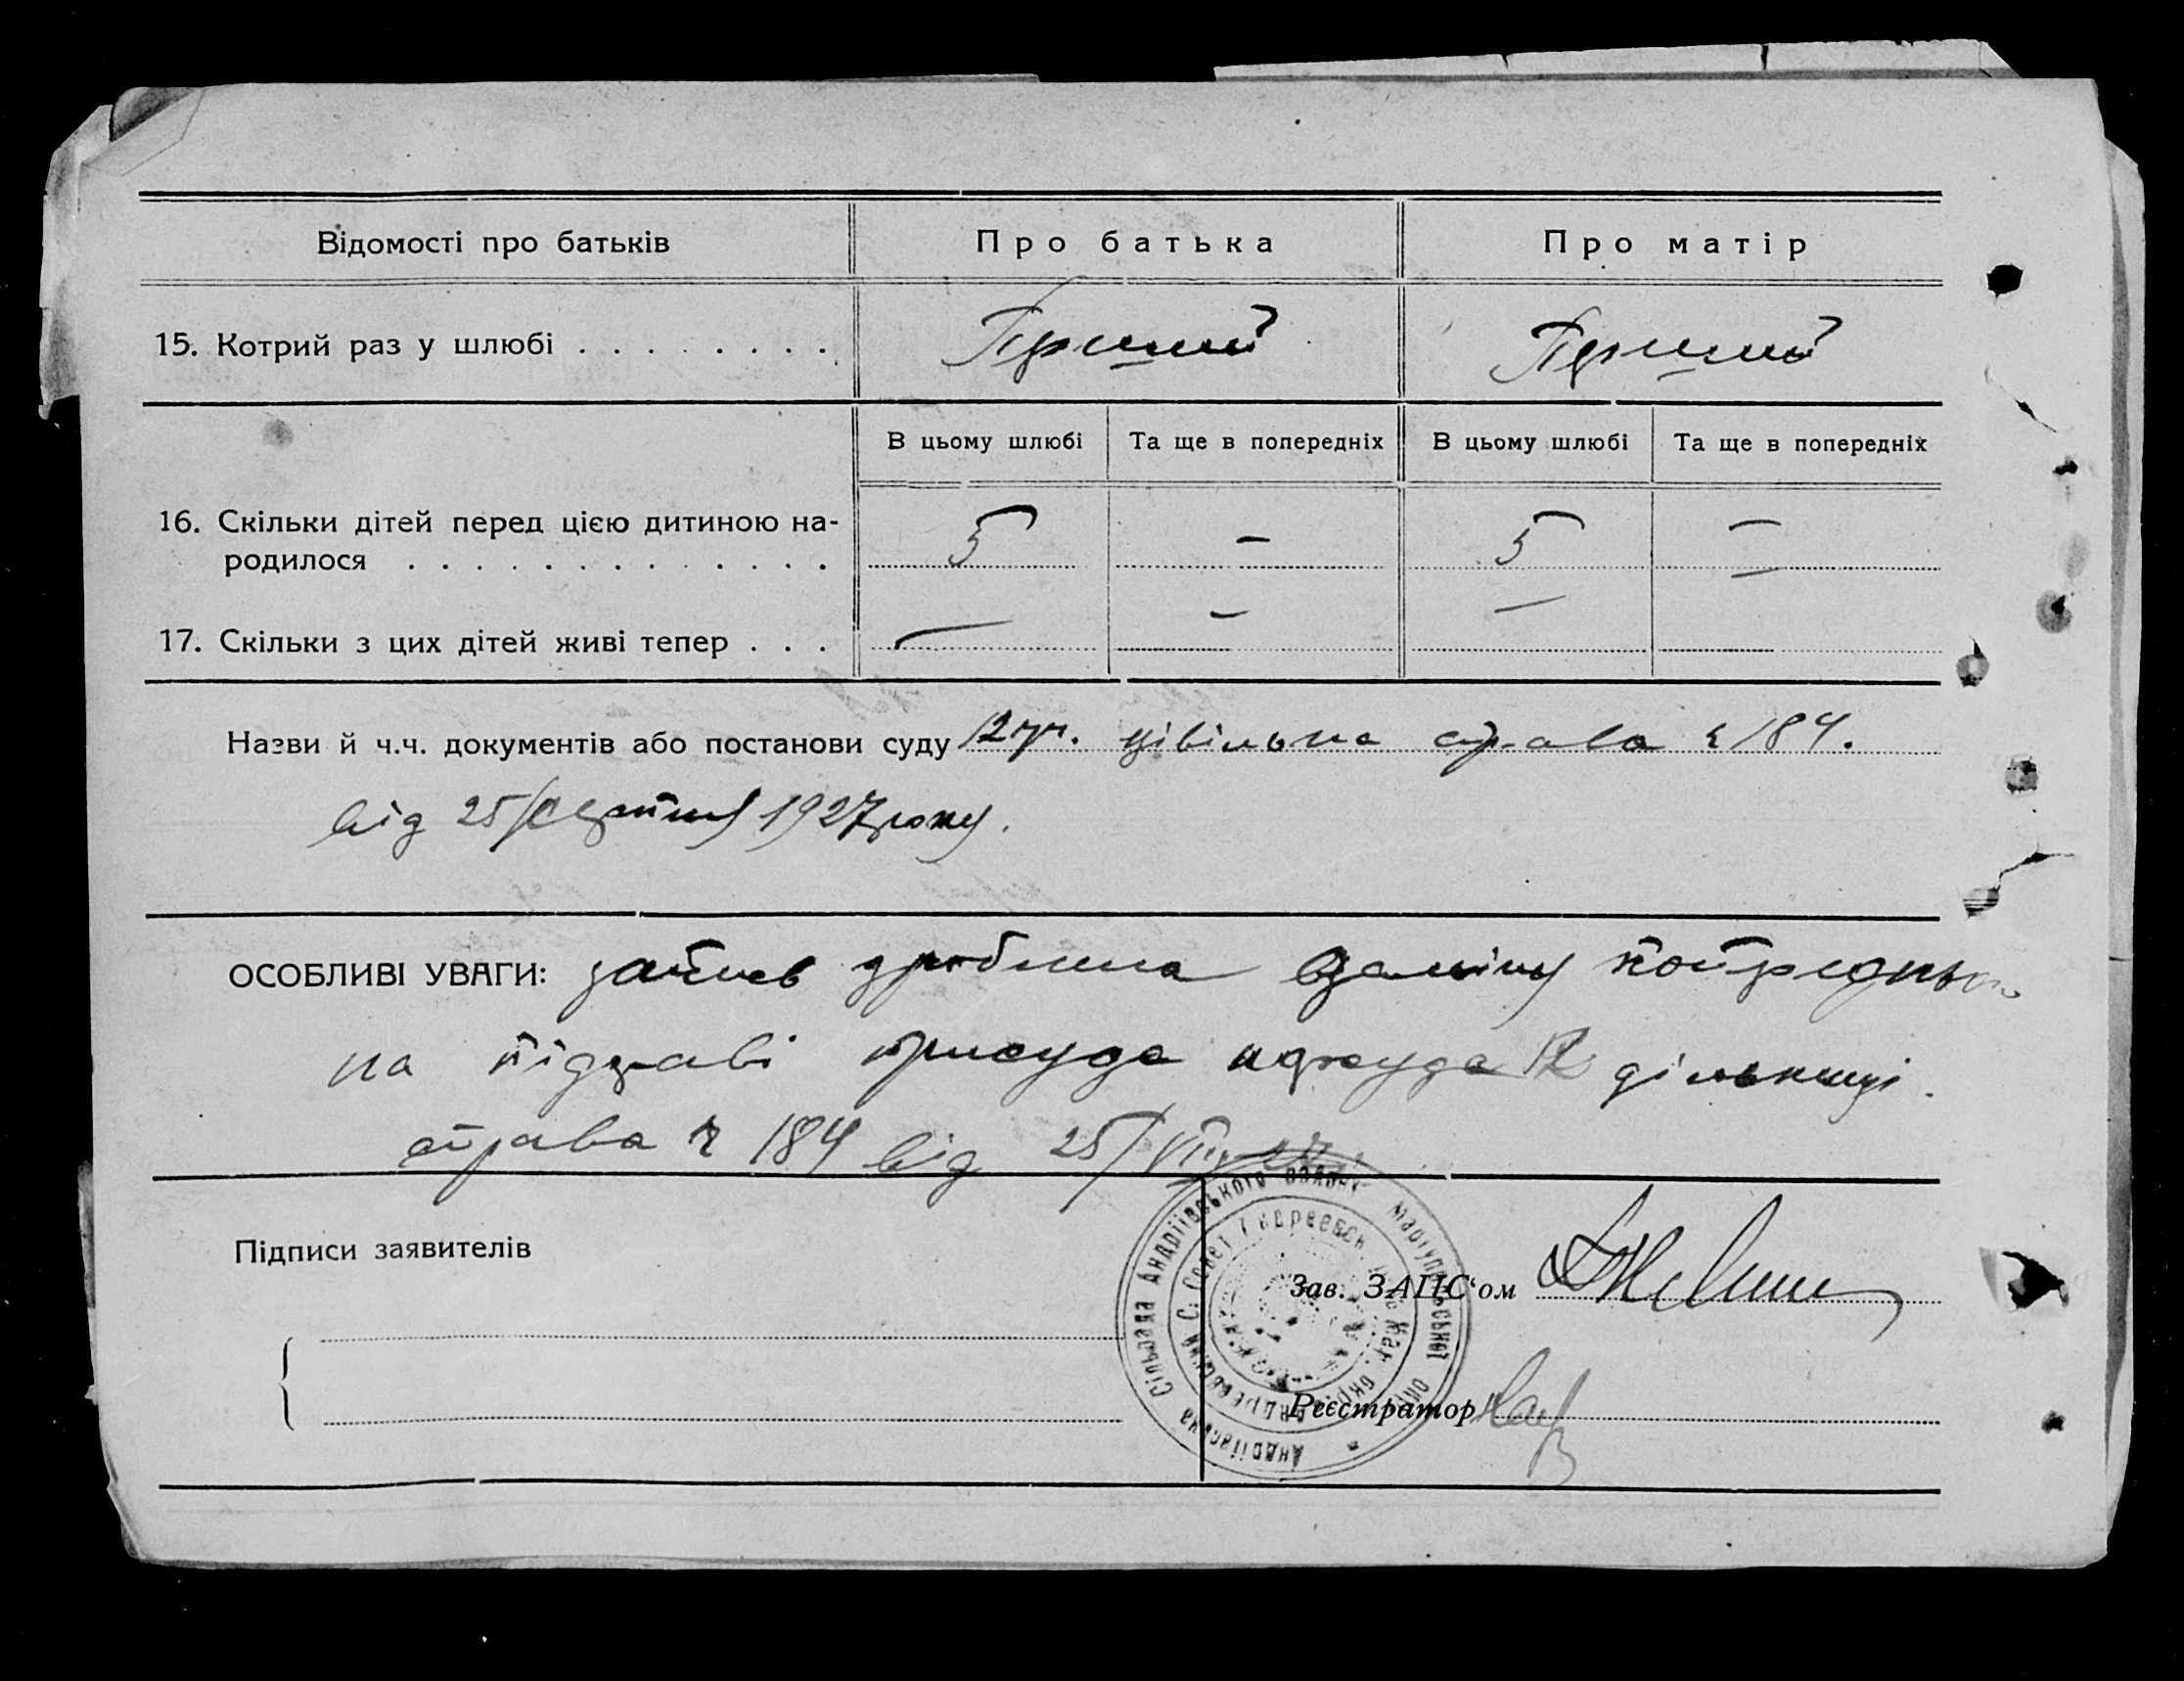 Відомості про батьків
Про батька
Про матір
15. Котрий раз у шлюбі . . . . . . . .
Перший
Перший
В цьому шлюбі
Та ще в попередніх
В цьому шлюбі
Та ще в попередніх
16. Скільки дітей перед цією дитиною на-
родилося . . . . . . . . . . . . .
5
—
5
—
17. Скільки з цих дітей живі тепер . . .
—
—
—
—
Назви й ч.ч. документів або постанови суду 12 уч. цівільна справа ч 184.
від 25/серпня 1927 року.
ОСОБЛИВІ УВАГИ: запись зроблена взаміну
на підставі присуда нарсуда 12 дільниці.
справа ч 184 від 25/VIII
Підписи заявителів
Зав. ЗАГС'ом
Реєстратор
Андріївська Сільрада Андріївського району Маріупольської окр